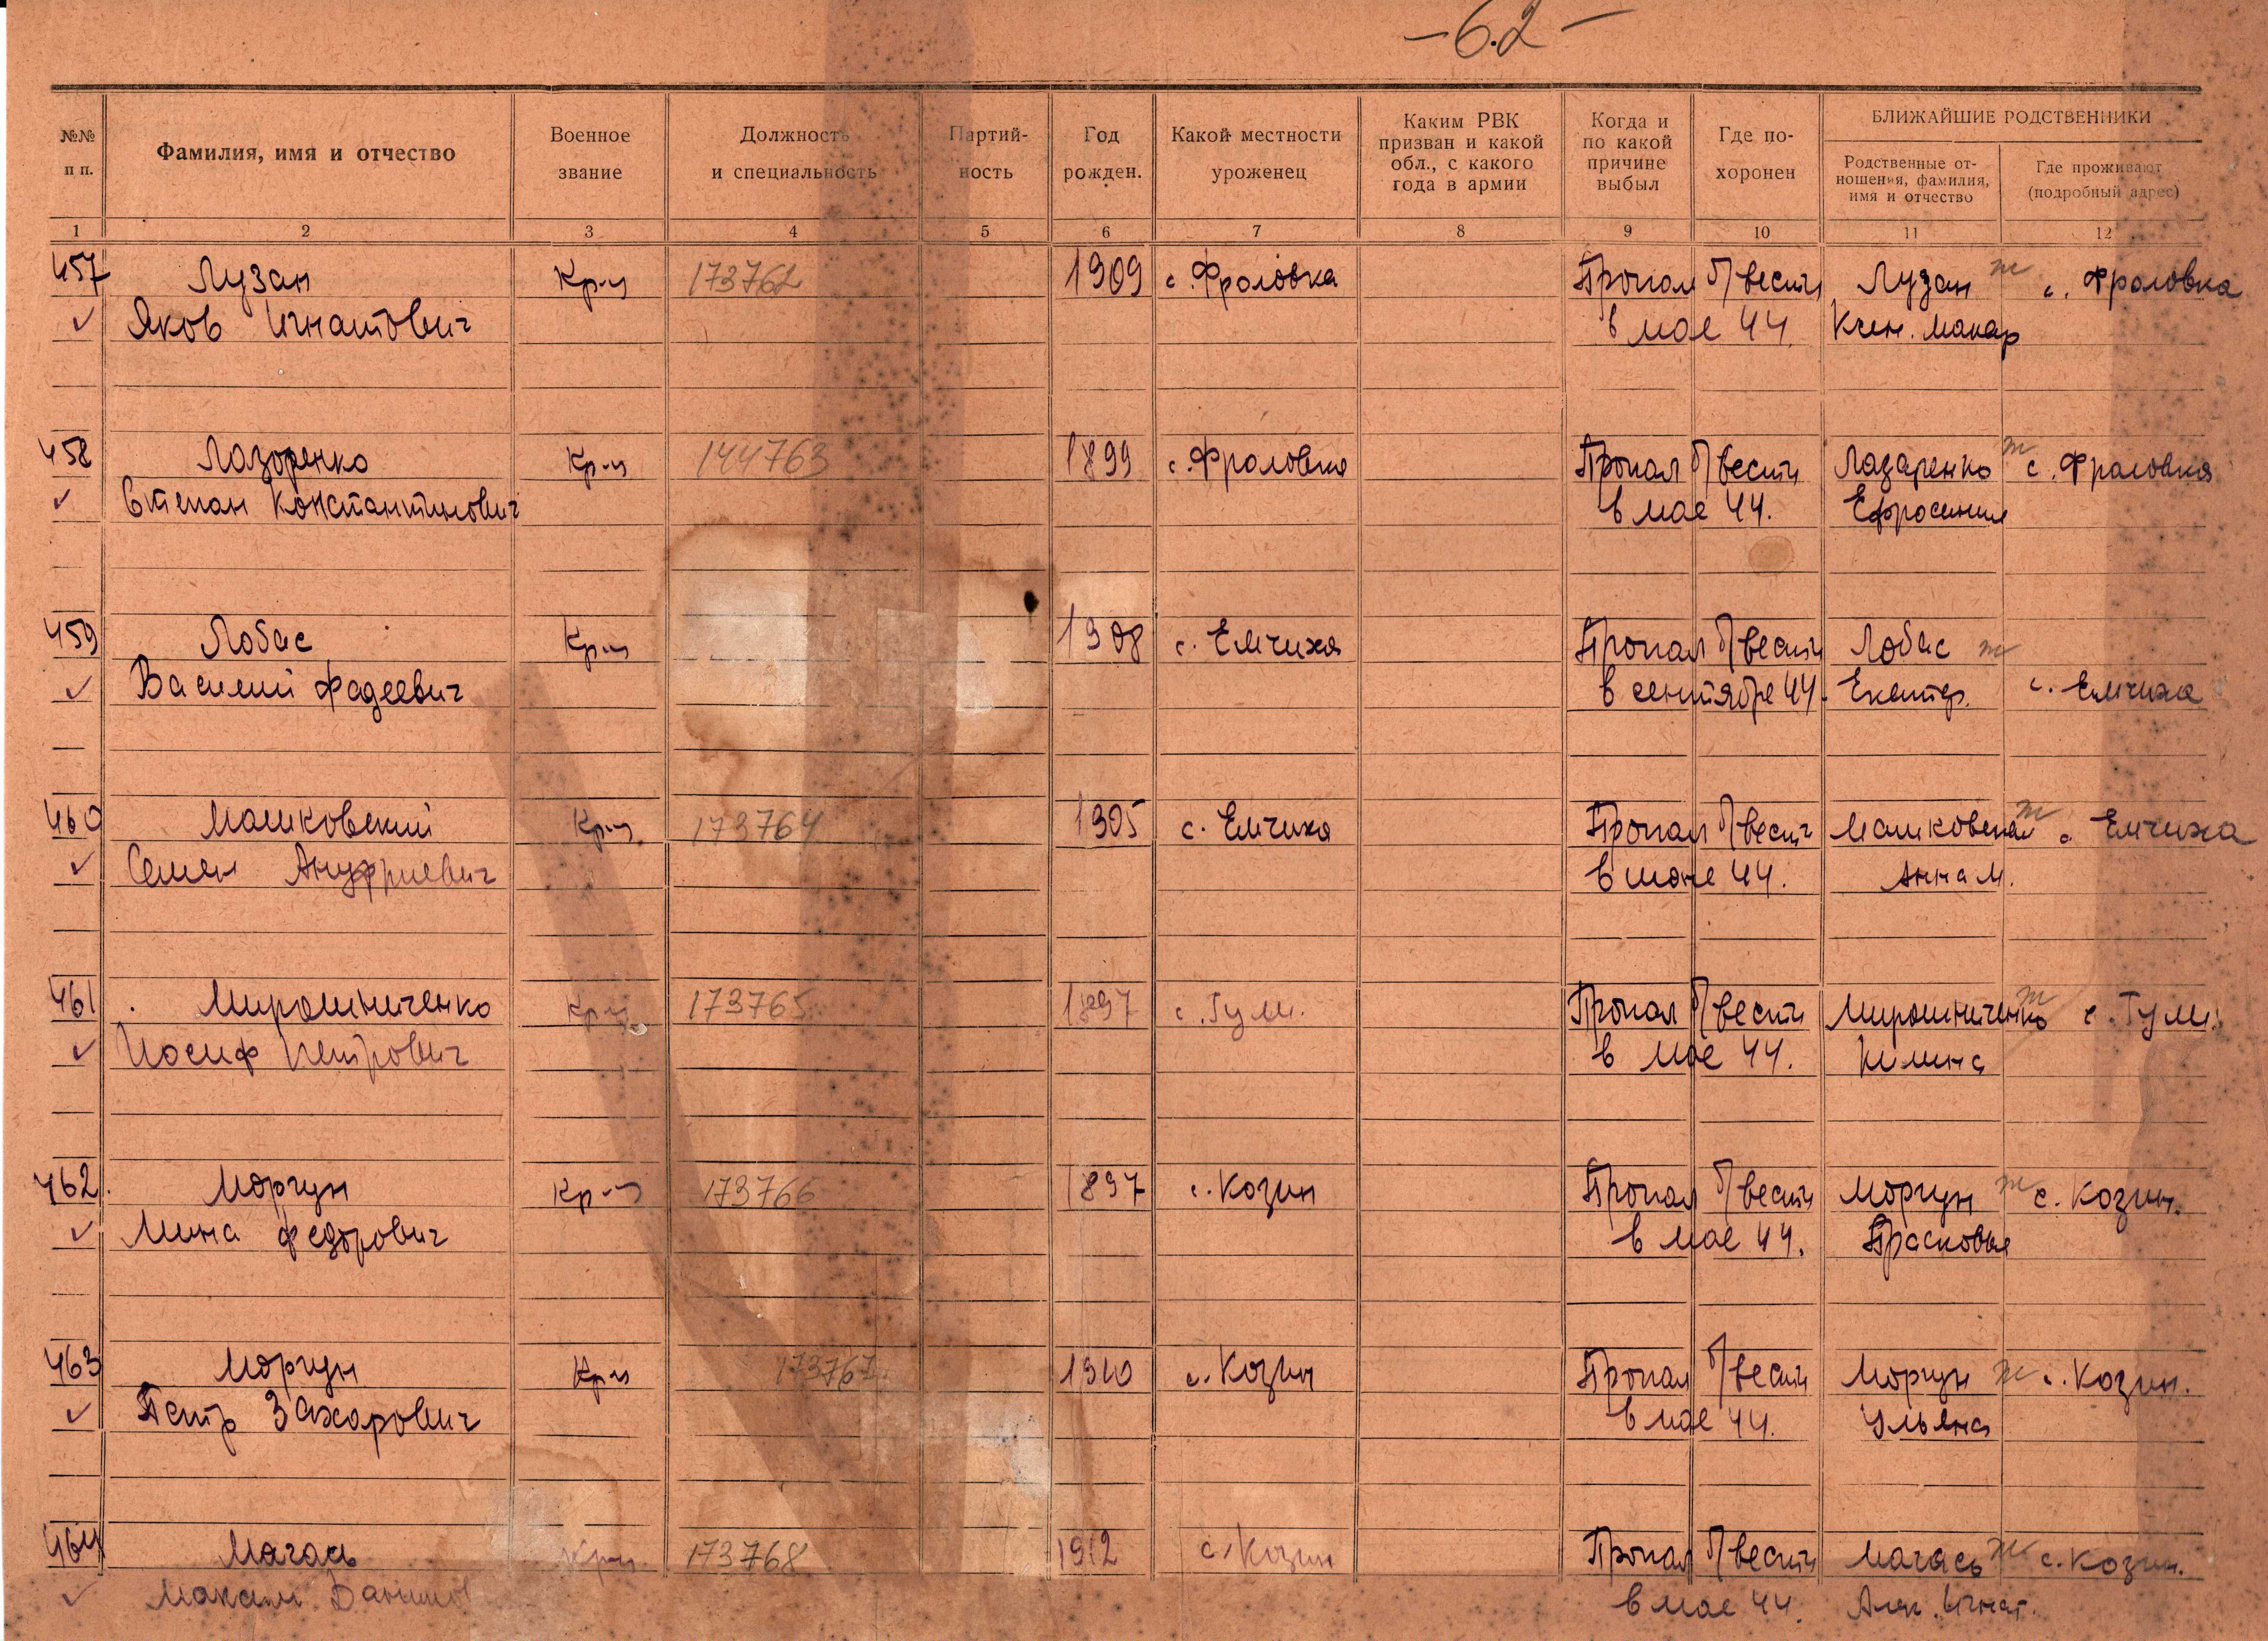 -62-
№№ п п.
Фамилия, имя и отчество
Военное звание
Должность и специальность
Партий-ность
Год рожден.
Какой местности уроженец
Каким РВК призван и какой обл., с какого года в армии
Когда и по какой причине выбыл
Где по-хоронен
БЛИЖАЙШИЕ РОДСТВЕННИКИ
Родственные от-ношения, фамилия, имя и отчество
Где проживают (подробный адрес)
1 2 3 4 5 6 7 8 9 10 11 12
457 Лузан Кр-ц 173762 1909 с. Фроловка Пропал б/вести Лузан ж с. Фроловка
Яков Игнатович в мае 44. Ксен. Макар
458 Лазоренко Кр-ц 144763 1899 с. Фроловка Пропал б/вести Лазаренко ж с. Фроловка
Степан Константинович в мае 44. Ефросиния
459 Лобас Кр-ц 1908 с. Емчиха Пропал б/вести Лобас ж
Василий Фадеевич в сентябре 44. Екатер. с. Емчиха
460 Машковский Кр-ц 173764 1905 с. Емчиха Пропал б/вест Машковская ж с. Емчиха
Семен Ануфриевич в июне 44. Анна М.
461 Мирошниченко Кр-ц 173765 1897 с. Гули. Пропал б/вести Мирошниченко ж с. Гули.
Иосиф Петрович в мае 44.
462. Моргун Кр-ц 173766 1897 с. Козин Пропал б/вести Моргун ж с. Козин.
Мина Федорович в мае 44. Прасковья
463 Моргун Кр-ц 173767 1910 с. Козин Пропал б/вести Моргун ж с. Козин.
Петр Захарович в мае 44. Ульяна
464 Магась Кр-ц 173768 1912 с. Козин Пропал б/вести Магась ж с. Козин.
Максим Данилов в мае 44. Алек. Игнат.